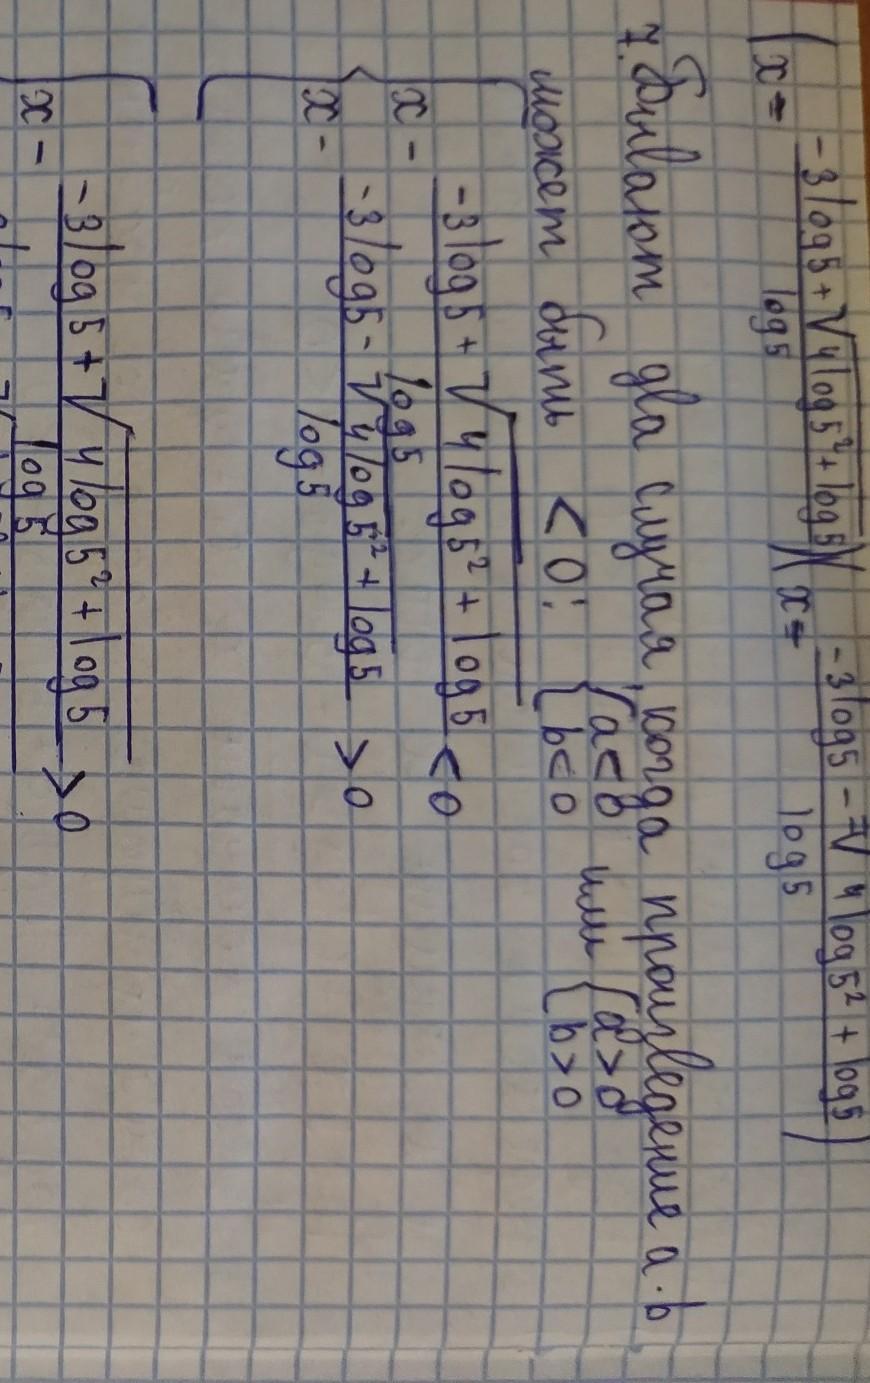 (x = (-3log5 + √(4log5² + log5))/log5)(x = (-3log5 - √(4log5² + log5))/log5)
7. Бывают два случая, когда произведение a · b
может быть < 0: {a<0 b<0 или {a>0 b>0
{x - (-3log5 + √(4log5² + log5))/log5 < 0
x - (-3log5 - √(4log5² + log5))/log5 > 0
{x - (-3log5 + √(4log5² + log5))/log5 > 0